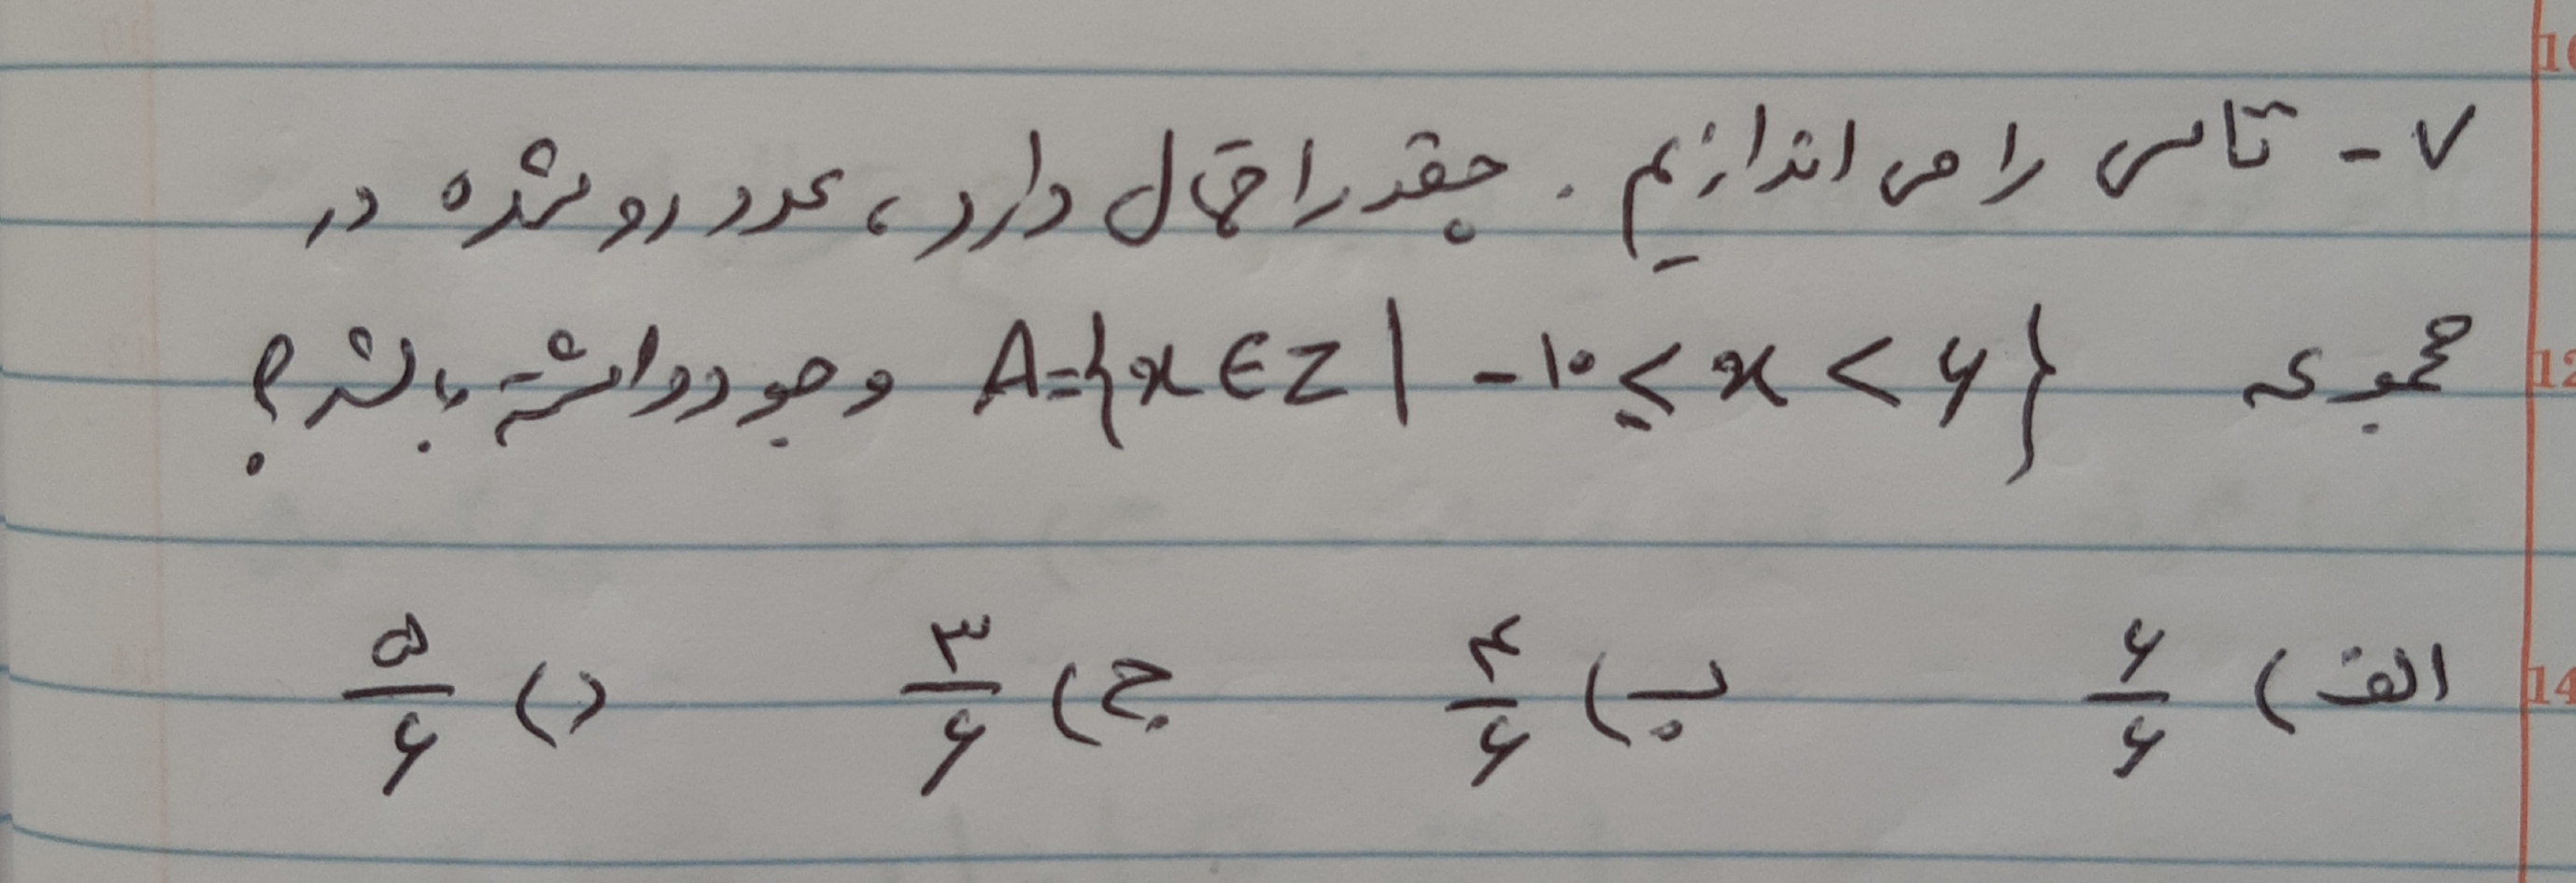 ۷- تاس را می اندازیم . چقدر احتمال دارد ، عدد رو شده در
مجموعه A={x∈Z | -۱۰≤x<۶} وجود داشته باشد؟
الف) ۶/۶ ب) ۴/۶ ج) ۳/۶ د) ۵/۶
10
12
14